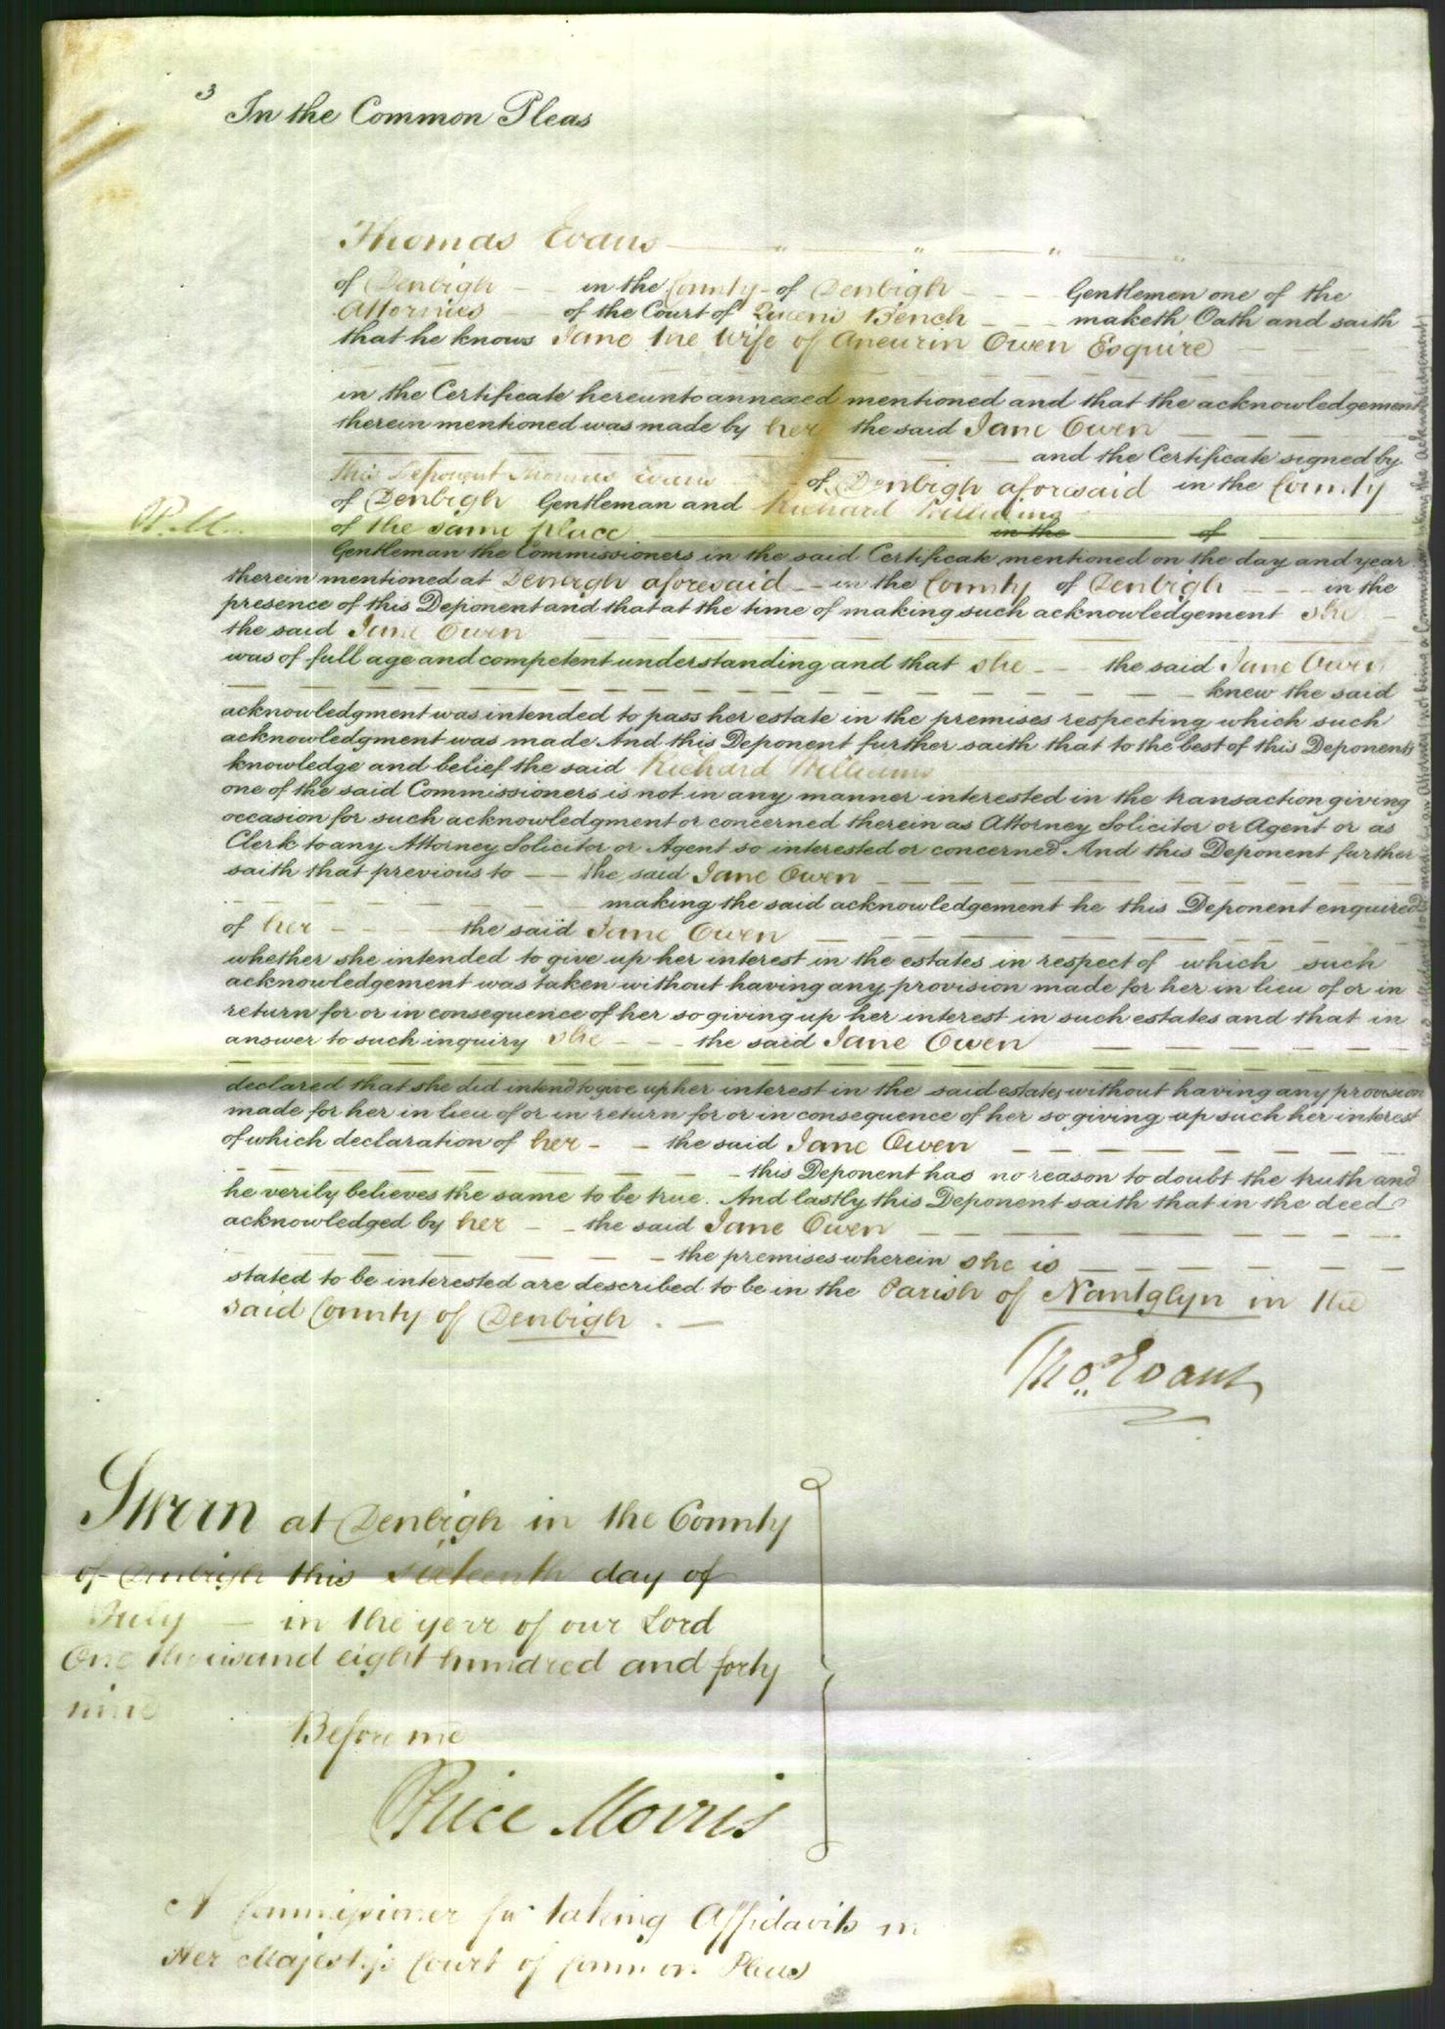 3
In the Common Pleas
Thomas Evans
of Denbigh in the County of Denbigh Gentlemen one of the
Attornies of the Court of Queens Bench maketh Oath and saith
that he knows Jane the Wife of Aneurin Owen Esquire
in the Certificate hereunto annexed mentioned and that the acknowledgement
therein mentioned was made by her the said Jane Owen
and the Certificate signed by
this Deponent Thomas Evans of Denbigh aforesaid in the County
of Denbigh Gentleman and Richard Williams
P.M. of the same place in the of
Gentleman the Commissioners in the said Certificate mentioned on the day and year
therein mentioned at Denbigh aforesaid in the County of Denbigh in the
presence of this Deponent and that at the time of making such acknowledgement she
the said Jane Owen
was of full age and competent understanding and that she the said Jane Owen
knew the said
acknowledgment was intended to pass her estate in the premises respecting which such
acknowledgment was made And this Deponent further saith that to the best of this Deponents
knowledge and belief the said Richard Williams
one of the said Commissioners is not in any manner interested in the transaction giving
occasion for such acknowledgment or concerned therein as Attorney Solicitor or Agent or as
Clerk to any Attorney Solicitor or Agent so interested or concerned And this Deponent further
saith that previous to the said Jane Owen
making the said acknowledgement he this Deponent enquired
of her the said Jane Owen
whether she intended to give up her interest in the estates in respect of which such
acknowledgement was taken without having any provision made for her in lieu of or in
return for or in consequence of her so giving up her interest in such estates and that in
answer to such inquiry she the said Jane Owen
declared that she did intend to give up her interest in the said estates without having any provision
made for her in lieu of or in return for or in consequence of her so giving up such her interest
of which declaration of her the said Jane Owen
this Deponent has no reason to doubt the truth and
he verily believes the same to be true. And lastly this Deponent saith that in the deed
acknowledged by her the said Jane Owen
the premises wherein she is
stated to be interested are described to be in the Parish of Nantglyn in the
said County of Denbigh.
Tho.s Evans
Sworn at Denbigh in the County
of Denbigh this sixteenth day of
July in the year of our Lord
One thousand eight hundred and forty
nine
Before me
Price Morris
A Commissioner for taking Affidavits in
Her Majesty's Court of Common Pleas
made by an Attorney (not being a Commissioner) taking the Acknowledgement)